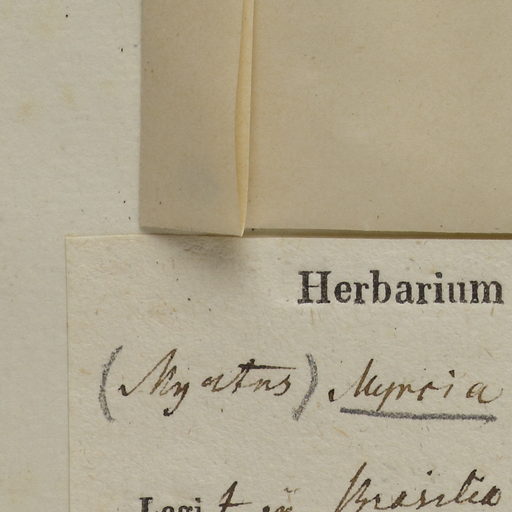 Herbarium
(Myrtus) Myrcia
Legi
Brasilia